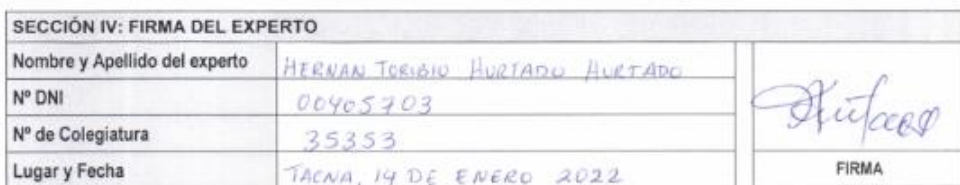 SECCIÓN IV: FIRMA DEL EXPERTO
Nombre y Apellido del experto HERNAN TORIBIO HURTADO HURTADO
Nº DNI 00405703
Nº de Colegiatura 35353
Lugar y Fecha TACNA, 14 DE ENERO 2022
FIRMA